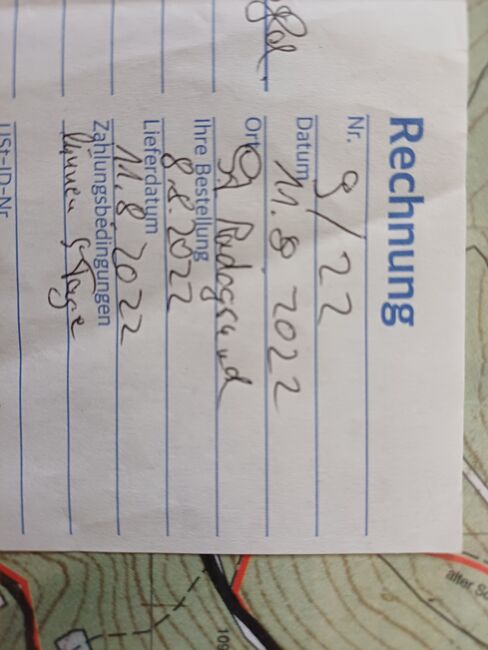 Rechnung
Nr. 9/22
Datum 11.8 2022
Ort
Ihre Bestellung
8.8.2022
Lieferdatum
11.8 2022
Zahlungsbedingungen
Tage
USt-ID-Nr
alter
109